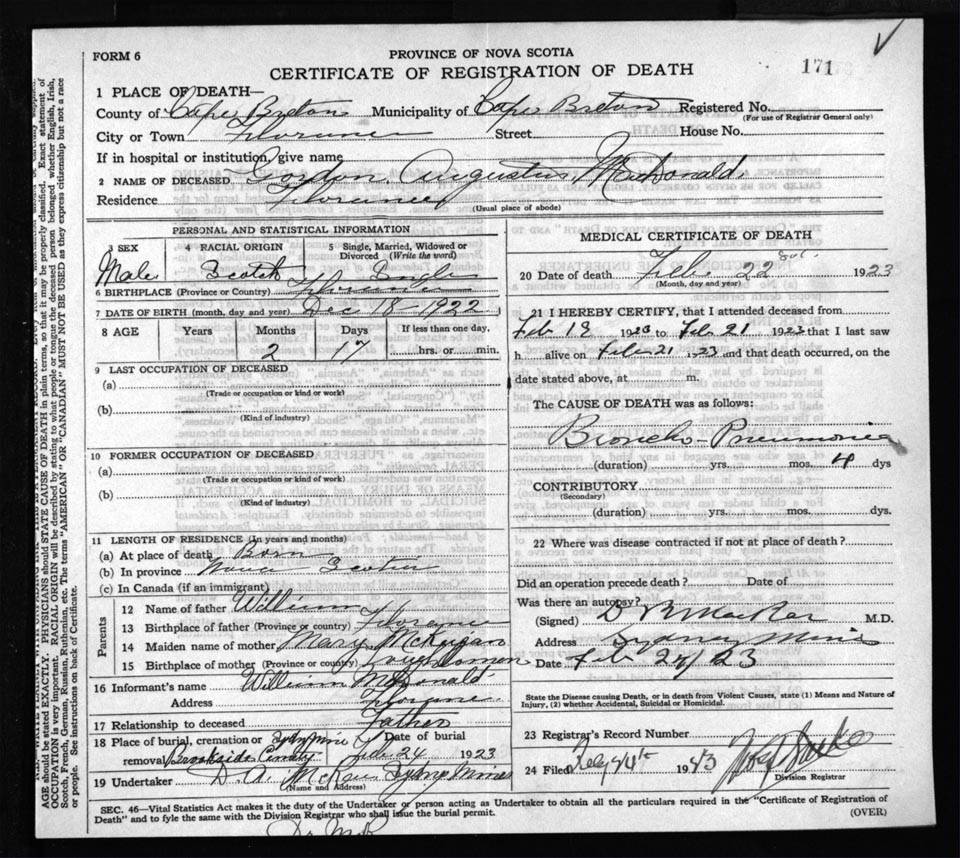 FORM 6
PROVINCE OF NOVA SCOTIA
CERTIFICATE OF REGISTRATION OF DEATH
171
1 PLACE OF DEATH—
County of Cape Breton Municipality of Cape Breton Registered No.
(For use of Registrar General only)
City or Town Florence Street House No.
If in hospital or institution, give name
2 NAME OF DECEASED Gordon Augustus McDonald
Residence Florence
(Usual place of abode)
PERSONAL AND STATISTICAL INFORMATION
3 SEX 4 RACIAL ORIGIN 5 Single, Married, Widowed or Divorced (Write the word)
Male Scotch Single
6 BIRTHPLACE (Province or Country) Florence
7 DATE OF BIRTH (month, day and year) Dec 18 1922
8 AGE Years Months Days If less than one day,
2 17 hrs. or min.
9 LAST OCCUPATION OF DECEASED
(a)
(Trade or occupation or kind or work)
(b)
(Kind of industry)
10 FORMER OCCUPATION OF DECEASED
(a)
(Trade or occupation or kind or work)
(b)
(Kind of industry)
11 LENGTH OF RESIDENCE (In years and months)
(a) At place of death Born
(b) In province Nova Scotia
(c) In Canada (if an immigrant)
Parents
12 Name of father William
13 Birthplace of father (Province or country) Florence
14 Maiden name of mother Mary McKeigan
15 Birthplace of mother (Province or country)
16 Informant's name William McDonald
Address Florence
17 Relationship to deceased Father
18 Place of burial, cremation or removal Sydney Mines Brookside Date of burial Feb 24 1923
19 Undertaker D. A. McRae Sydney Mines
(Name and Address)
MEDICAL CERTIFICATE OF DEATH
20 Date of death Feb 22 1923
(Month, day and year)
21 I HEREBY CERTIFY, that I attended deceased from
Feb 19 1923 to Feb 21 1923 that I last saw
h alive on Feb 21 1923 and that death occurred, on the
date stated above, at m.
The CAUSE OF DEATH was as follows:
Broncho-Pneumonia
(duration) yrs. mos. 4 dys
CONTRIBUTORY
(Secondary)
(duration) yrs. mos. dys.
22 Where was disease contracted if not at place of death?
Did an operation precede death? Date of
Was there an autopsy?
(Signed) M.D.
Address Sydney Mines
Date Feb 24/23
State the Disease causing Death, or in death from Violent Causes, state (1) Means and Nature of
Injury, (2) whether Accidental, Suicidal or Homicidal.
23 Registrar's Record Number
24 Filed 19
Division Registrar
SEC. 46—Vital Statistics Act makes it the duty of the Undertaker or person acting as Undertaker to obtain all the particulars required in the "Certificate of Registration of
Death" and to fyle the same with the Division Registrar who shall issue the burial permit.
(OVER)
AGE should be stated EXACTLY. PHYSICIANS should STATE CAUSE OF DEATH in plain terms, so that it may be properly classified. Exact statement of
OCCUPATION is very important. RACIAL ORIGIN will be described by stating to what people or tongue the deceased person belonged whether English, Irish,
Scotch, French, German, Russian, Ruthenian, etc. The terms "AMERICAN" OR "CANADIAN" MUST NOT BE USED as they express citizenship but not a race
or people. See instructions on back of Certificate.